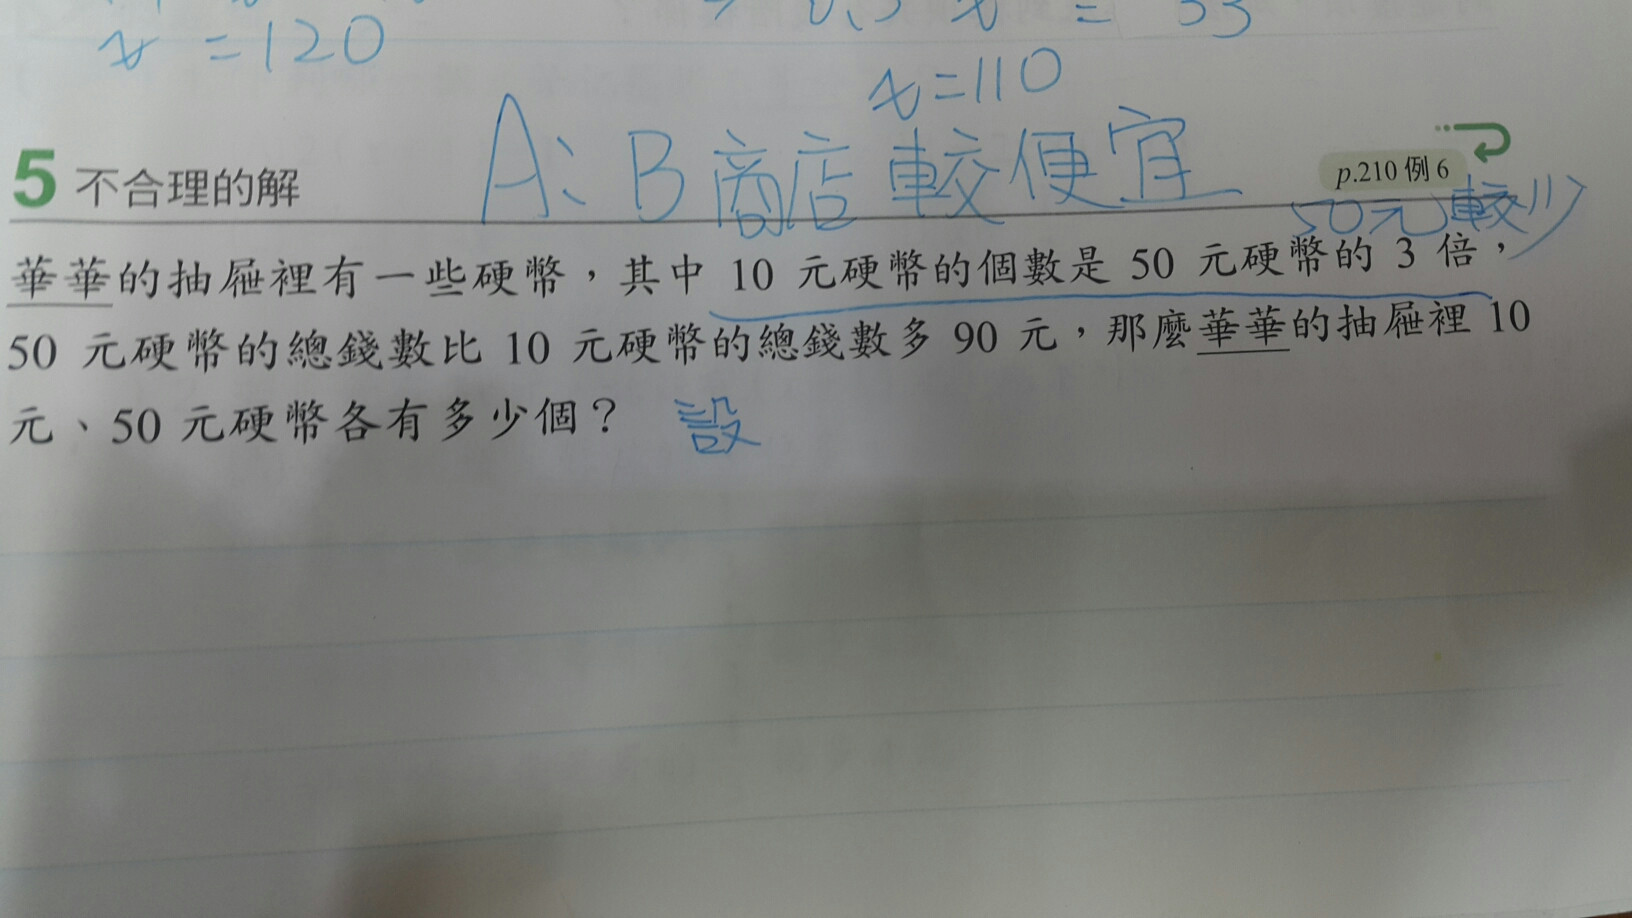 x = 120
x = 110
A: B商店較便宜
5 不合理的解
p.210 例 6
50元較少
華華的抽屜裡有一些硬幣，其中 10 元硬幣的個數是 50 元硬幣的 3 倍，
50 元硬幣的總錢數比 10 元硬幣的總錢數多 90 元，那麼華華的抽屜裡 10
元、50 元硬幣各有多少個？ 設